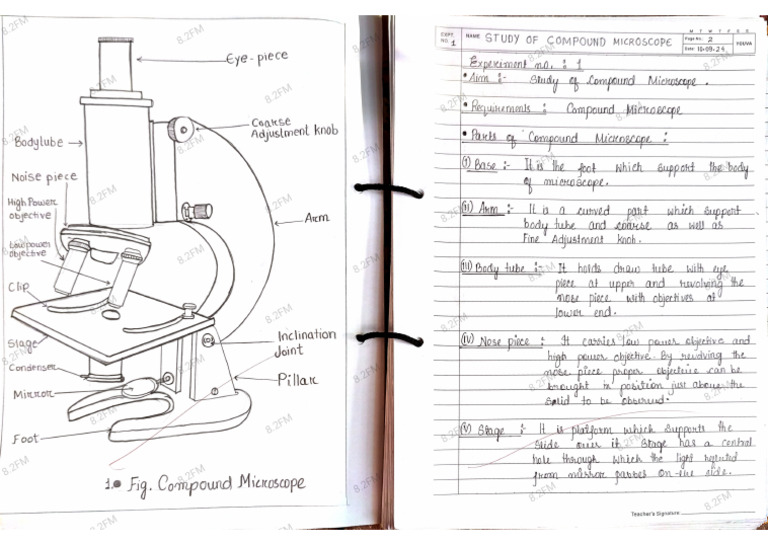 Eye-piece
Coarse
Adjustment knob
Bodylube
Noise piece
High Power
objective
Arm
Low power
objective
Clip
Stage
Inclination
Joint
Condenser
Pillar
Mirror
Foot
1. Fig. Compound Microscope
EXPT. NO. 1
NAME STUDY OF COMPOUND MICROSCOPE
M T W T F S S
Page No.: 2
Date: 10-09-24
YOUVA
Experiment no. : 1
• Aim :- Study of Compound Microscope.
• Requirements : Compound Microscope
• Parts of Compound Microscope :
(i) Base :- It is the foot which support the body
of microscope.
(ii) Arm :- It is a curved part which support
body tube and coarse as well as
Fine Adjustment knob.
(iii) Body tube :- It holds draw tube with eye
piece at upper and revolving the
nose piece with objectives at
lower end.
(iv) Nose piece :- It carries low power objective and
high power objective. By revolving the
nose piece proper objective can be
brought in position just above the
to be observed.
(v) Stage :- It is platform which supports the
slide over it. Stage has a central
hole through which the light
from mirror passes on-the side.
Teacher's Signature
8.2FM